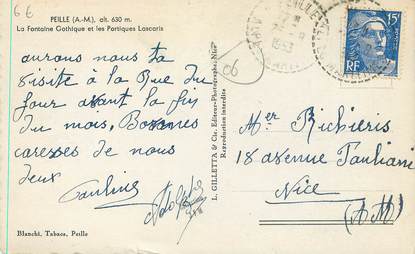 66
PEILLE (A.-M.), alt. 630 m.
La Fontaine Gothique et les Portiques Lascaris
aurons nous ta
visite à la Rue du
Jour avant la fin
du mois, Bonnes
caresses de nous
deux
Pauline
Blanchi, Tabacs, Peille
L. GILLETTA & Cie, Editeur-Photographe, Nice
Reproduction interdite
PEILLE
1953
15F
RF
Mer Richieris
18 avenue Pauliani
Nice
(AM)